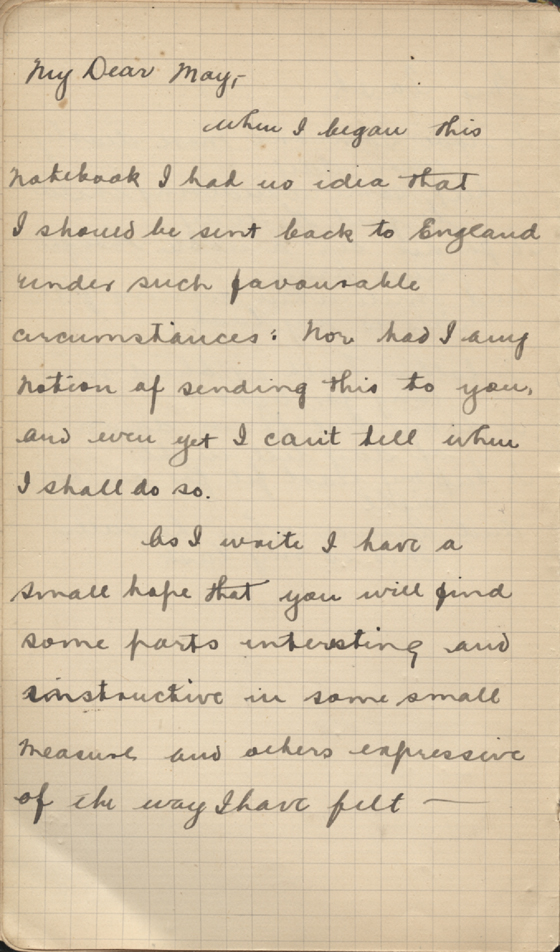 My Dear May,-
when I began this
notebook I had no idea that
I should be sent back to England
under such favourable
circumstances: Nor had I any
notion of sending this to you,
and even yet I can't tell when
I shall do so.
As I write I have a
small hope that you will find
some parts interesting and
instructive in some small
measure and others expressive
of the way I have felt —